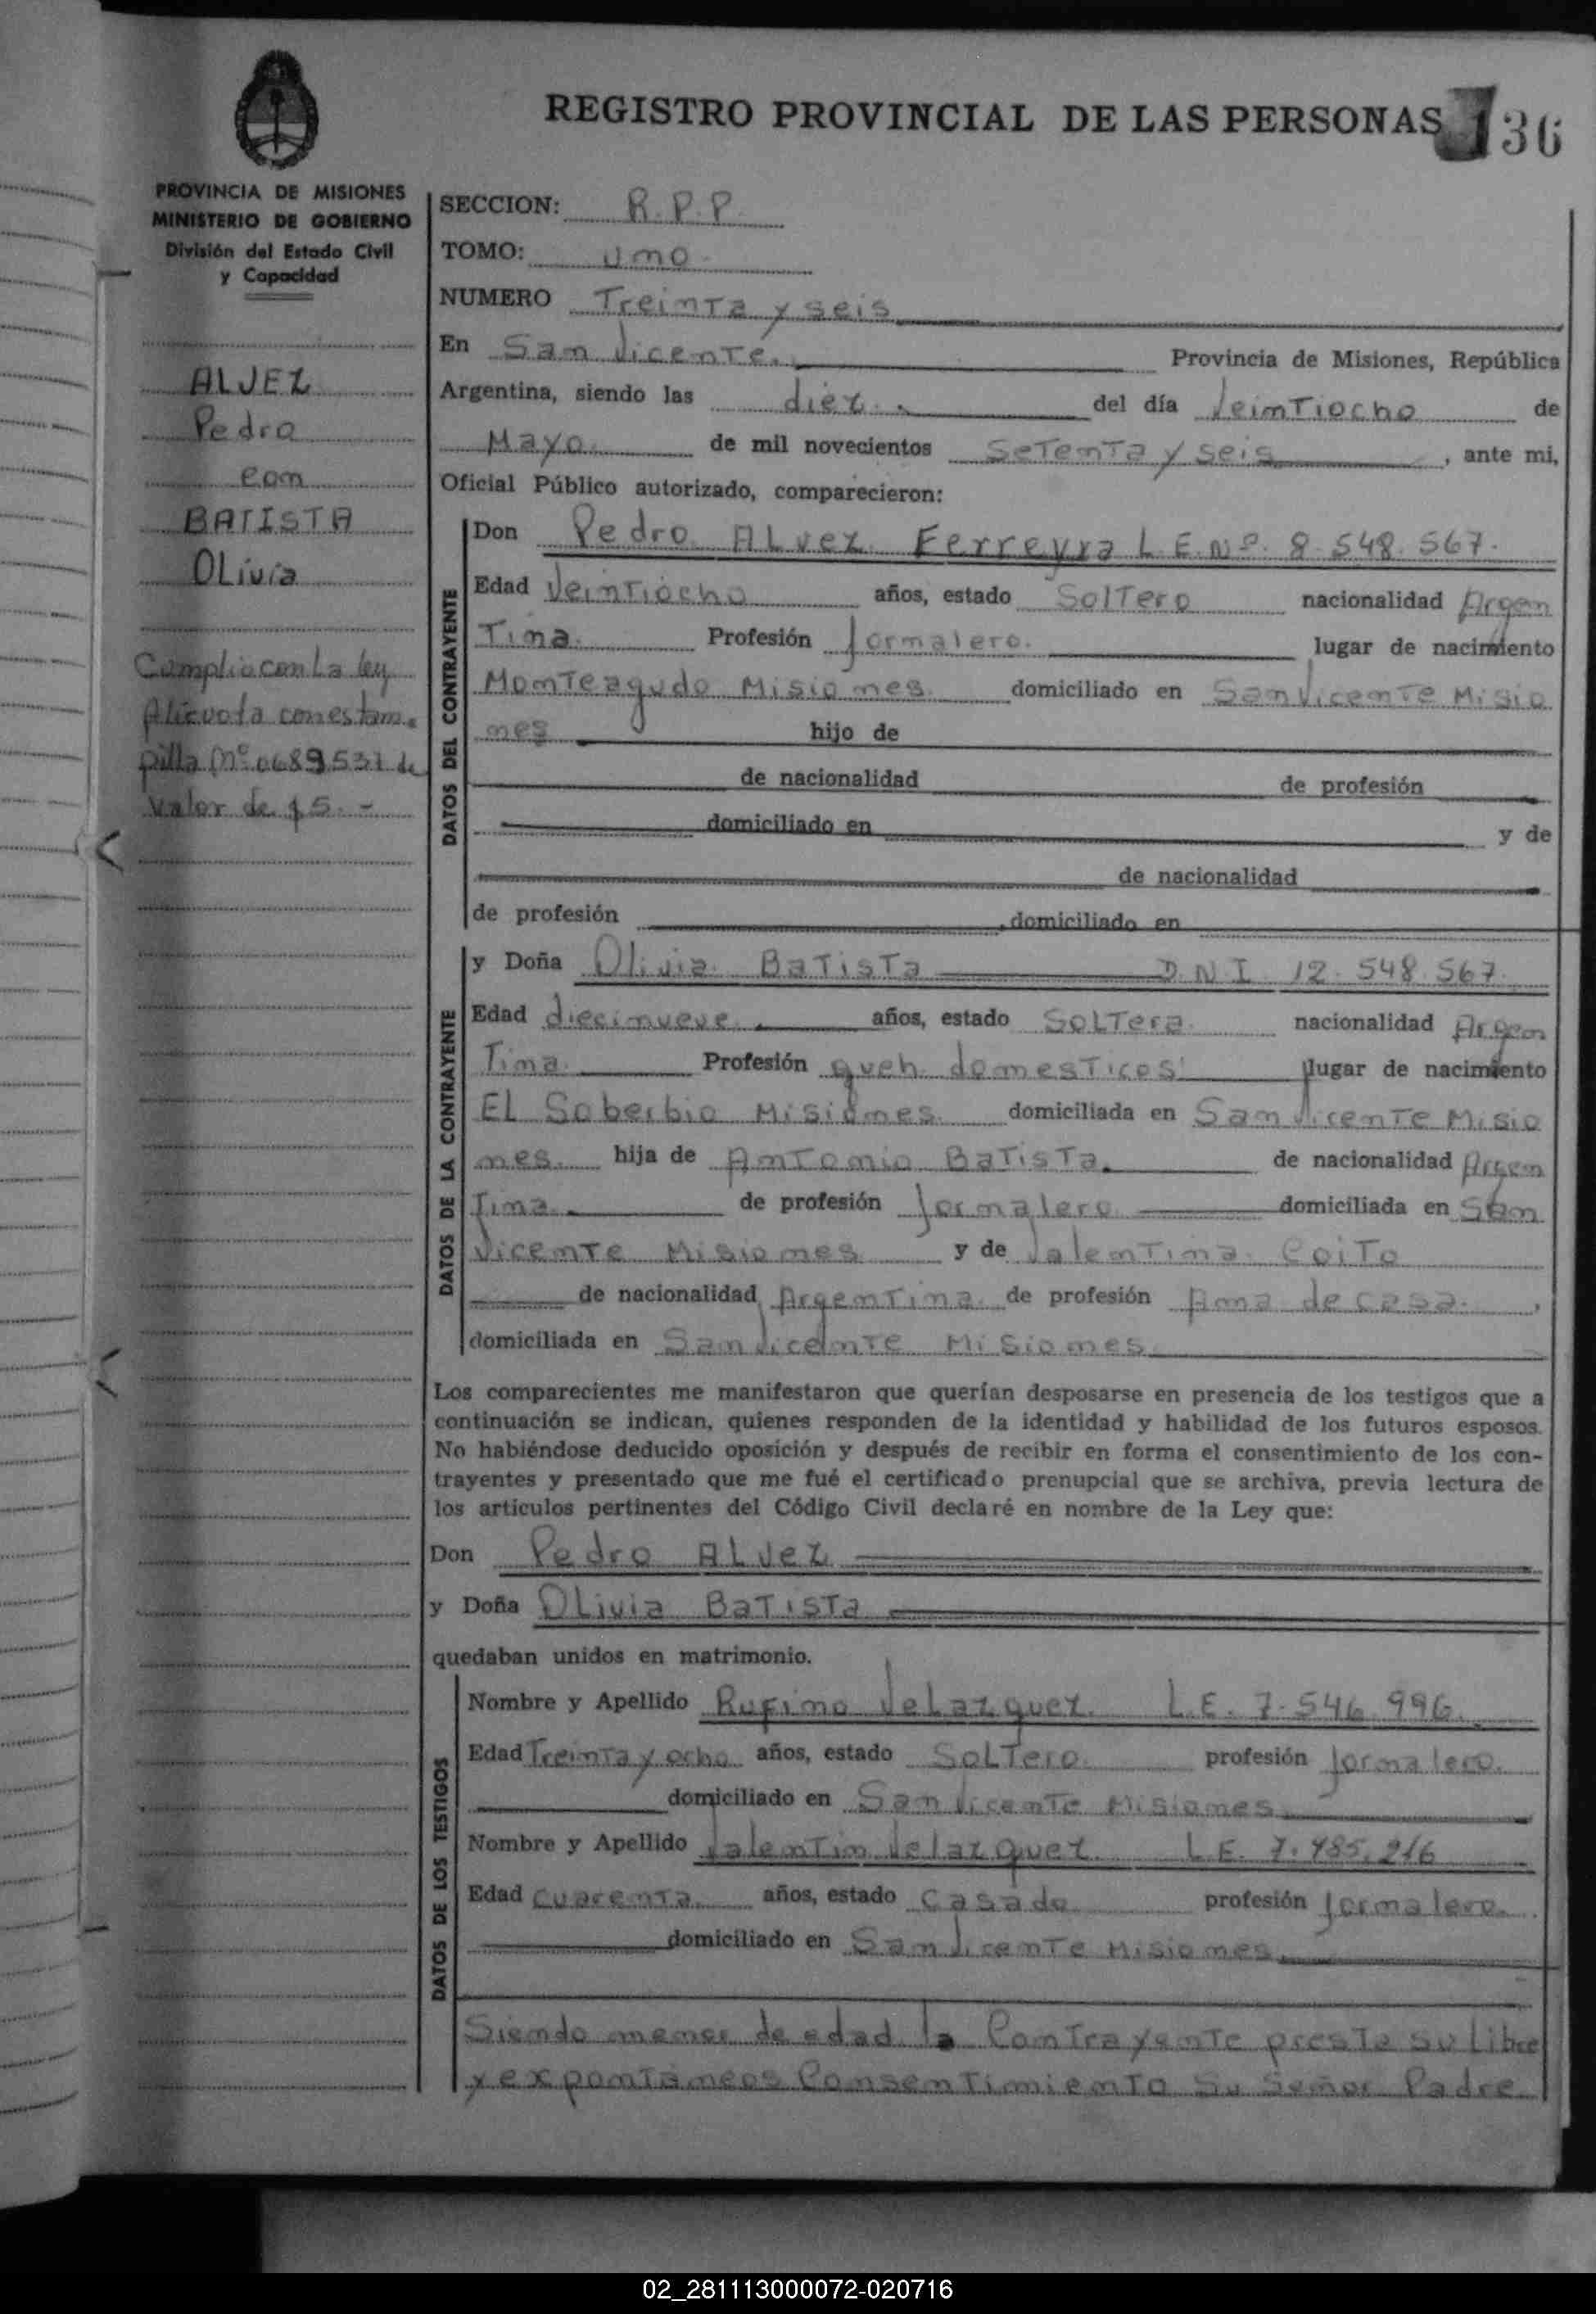 REGISTRO PROVINCIAL DE LAS PERSONAS
136
PROVINCIA DE MISIONES
MINISTERIO DE GOBIERNO
División del Estado Civil
y Capacidad
ALVEZ
Pedro
con
BATISTA
OLivia
Cumplio con La ley
Alicuota con estam-
pilla Nº 0689531 de
valor de $5.-
SECCION: R.P.P.
TOMO: uno
NUMERO Treinta y seis
En San Vicente. Provincia de Misiones, República
Argentina, siendo las diez. del día Veintiocho de
Mayo de mil novecientos Setenta y seis, ante mi,
Oficial Público autorizado, comparecieron:
DATOS DEL CONTRAYENTE
Don Pedro ALvez Ferreyra L.E.Nº. 8.548.567.
Edad Veintiocho años, estado SolTero nacionalidad Argen
Tina. Profesión Jornalero. lugar de nacimiento
Monteagudo Misiones domiciliado en San Vicente Misio
nes hijo de
de nacionalidad de profesión
domiciliado en y de
de nacionalidad
de profesión , domiciliado en
DATOS DE LA CONTRAYENTE
y Doña Olivia BaTisTa D.N.I 12.548.567.
Edad diecinueve. años, estado SoLTera nacionalidad Argen
Tina. Profesión queh. domesticos lugar de nacimiento
EL Soberbio Misiones domiciliada en San Vicente Misio
nes. hija de Antonio BaTisTa. de nacionalidad Argen
Tina. de profesión Jornalero domiciliada en San
Vicente Misiones y de Valentina CoiTo
de nacionalidad Argentina de profesión Ama de casa.,
domiciliada en San Vicente Misiones
Los comparecientes me manifestaron que querían desposarse en presencia de los testigos que a
continuación se indican, quienes responden de la identidad y habilidad de los futuros esposos.
No habiéndose deducido oposición y después de recibir en forma el consentimiento de los con-
trayentes y presentado que me fué el certificado prenupcial que se archiva, previa lectura de
los artículos pertinentes del Código Civil declaré en nombre de la Ley que:
Don Pedro ALVez
y Doña OLivia BaTisTa
quedaban unidos en matrimonio.
DATOS DE LOS TESTIGOS
Nombre y Apellido Rufino VeLazquez. L.E. 7.546.996.
Edad Treinta y ocho años, estado SoLTero. profesión Jornalero.
domiciliado en San Vicente Misiones
Nombre y Apellido Valentin Velazquez. L.E. 7.485.216
Edad cuarenta. años, estado casado profesión Jornalero.
domiciliado en San Vicente Misiones
Siendo menor de edad la Contrayente presta su Libre
y expontaneos Consentimiento Su Señor Padre
02_281113000072-020716